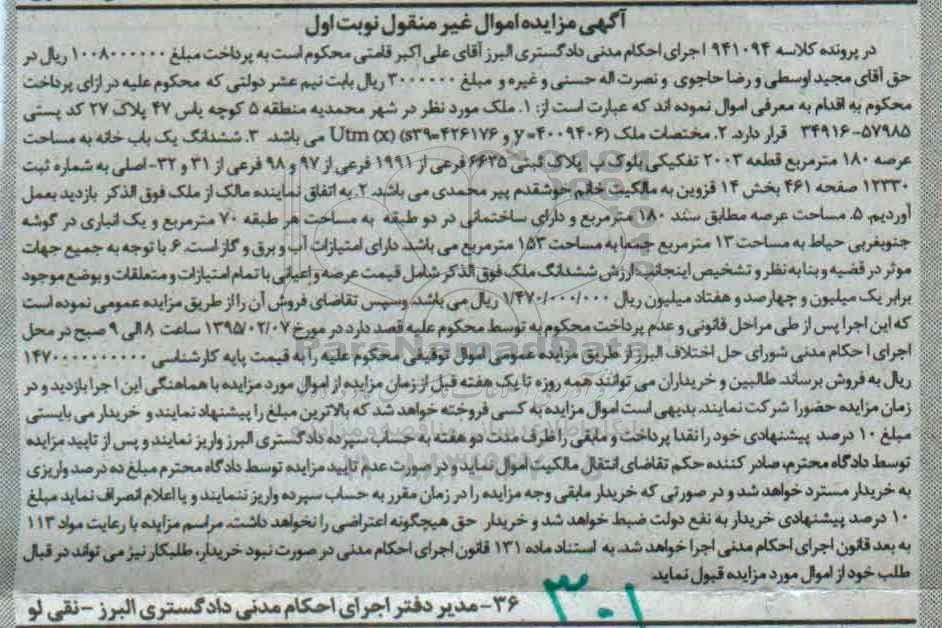 آگهی مزایده اموال غیر منقول نوبت اول
در پرونده کلاسه ۹۴۱۰۹۴ اجرای احکام مدنی دادگستری البرز آقای علی اکبر قامتی محکوم است به پرداخت مبلغ ۱۰۰۸۰۰۰۰۰۰ ریال در
حق آقای مجید اوسطی و رضا حاجوی و نصرت اله حسنی و غیره و مبلغ ۳۰۰۰۰۰۰ ریال بابت نیم عشر دولتی که محکوم علیه در ازای پرداخت
محکوم به اقدام به معرفی اموال نموده اند که عبارت است از: ۱. ملک مورد نظر در شهر محمدیه منطقه ۵ کوچه یاس ۴۷ پلاک ۲۷ کد پستی
۳۴۹۱۶-۵۷۹۸۵ قرار دارد. ۲. مختصات ملک (y=۴۰۰۹۴۰۶ و s۳۹=۴۲۶۱۷۶) Utm (x) می باشد. ۳. ششدانگ یک باب خانه به مساحت
عرصه ۱۸۰ مترمربع قطعه ۲۰۰۳ تفکیکی بلوک پ پلاک ثبتی ۶۶۲۵ فرعی از ۱۹۹۱ فرعی از ۹۷ و ۹۸ فرعی از ۳۱ و ۳۲- اصلی به شماره ثبت
۱۲۳۳۰ صفحه ۴۶۱ بخش ۱۴ قزوین به مالکیت خانم خوشقدم پیر محمدی می باشد. ۲. به اتفاق نماینده مالک از ملک فوق الذکر بازدید بعمل
آوردیم. ۵. مساحت عرصه مطابق سند ۱۸۰ مترمربع و دارای ساختمانی در دو طبقه به مساحت هر طبقه ۷۰ مترمربع و یک انباری در گوشه
جنوبغربی حیاط به مساحت ۱۳ مترمربع جمعا به مساحت ۱۵۳ مترمربع می باشد. دارای امتیازات آب و برق و گاز است. ۶. با توجه به جمیع جهات
موثر در قضیه و بنا به نظر و تشخیص اینجانب ارزش ششدانگ ملک فوق الذکر شامل قیمت عرصه و اعیانی با تمام امتیازات و متعلقات و بوضع موجود
برابر یک میلیون و چهارصد و هفتاد میلیون ریال ۱/۴۷۰/۰۰۰/۰۰۰ ریال می باشد. وسپس تقاضای فروش آن را از طریق مزایده عمومی نموده است
که این اجرا پس از طی مراحل قانونی و عدم پرداخت محکوم به توسط محکوم علیه قصد دارد در مورخ ۱۳۹۵/۰۲/۰۷ ساعت ۸ الی ۹ صبح در محل
اجرای احکام مدنی شورای حل اختلاف البرز از طریق مزایده عمومی اموال توقیفی محکوم علیه را به قیمت پایه کارشناسی ۱۴۷۰۰۰۰۰۰۰۰۰۰
ریال به فروش برساند. طالبین و خریداران می توانند همه روزه تا یک هفته قبل از زمان مزایده از اموال مورد مزایده با هماهنگی این اجرا بازدید و در
زمان مزایده حضورا شرکت نمایند. بدیهی است اموال مزایده به کسی فروخته خواهد شد که بالاترین مبلغ را پیشنهاد نمایند و خریدار می بایستی
مبلغ ۱۰ درصد پیشنهادی خود را نقدا پرداخت و مابقی را ظرف مدت دو هفته به حساب سپرده دادگستری البرز واریز نمایند و پس از تایید مزایده
توسط دادگاه محترم، صادر کننده حکم تقاضای انتقال مالکیت اموال نماید و در صورت عدم تایید مزایده توسط دادگاه محترم مبلغ ده درصد واریزی
به خریدار مسترد خواهد شد و در صورتی که خریدار مابقی وجه مزایده را در زمان مقرر به حساب سپرده واریز ننمایند و یا اعلام انصراف نماید مبلغ
۱۰ درصد پیشنهادی خریدار به نفع دولت ضبط خواهد شد و خریدار حق هیچگونه اعتراضی را نخواهد داشت. مراسم مزایده با رعایت مواد ۱۱۳
به بعد قانون اجرای احکام مدنی اجرا خواهد شد. به استناد ماده ۱۳۱ قانون اجرای احکام مدنی در صورت نبود خریدار، طلبکار نیز می تواند در قبال
طلب خود از اموال مورد مزایده قبول نماید.
۳۶- مدیر دفتر اجرای احکام مدنی دادگستری البرز - نقی لو
۳۰۱
ParsNamadData